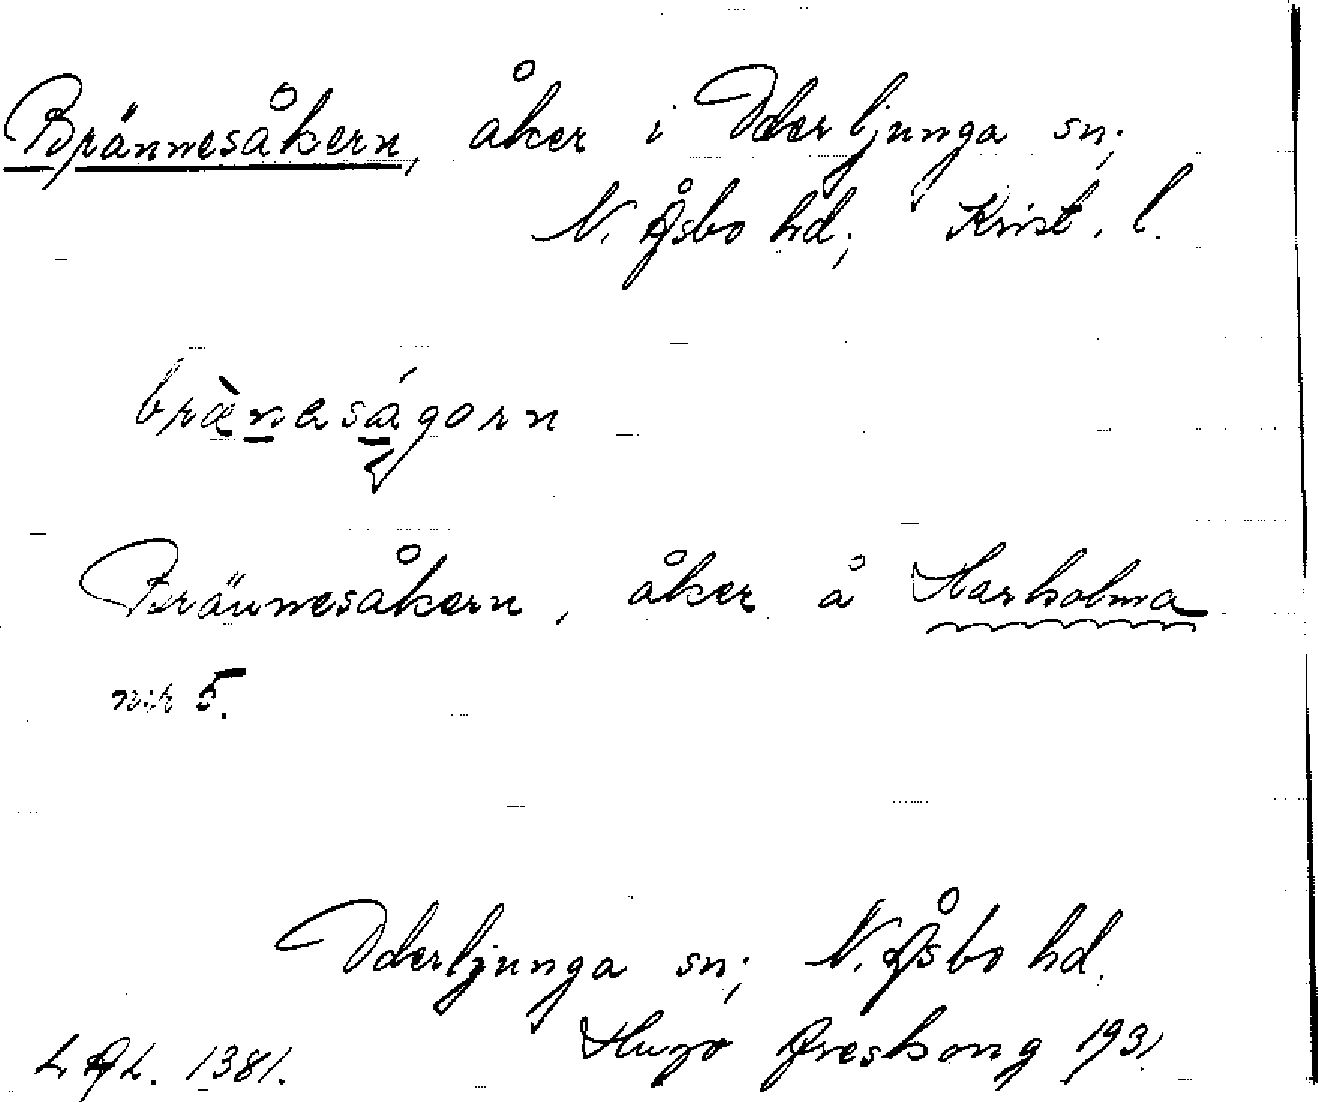 Brännesåkern, åker i Oderljunga sn;
N. Åsbo hd; Krist. l.
bränasågorn
Brännesåkern, åker å Harholma
n:r 5.
Oderljunga sn; N. Åsbo hd.
L A L. 1381. Hugo Areskoug 1931